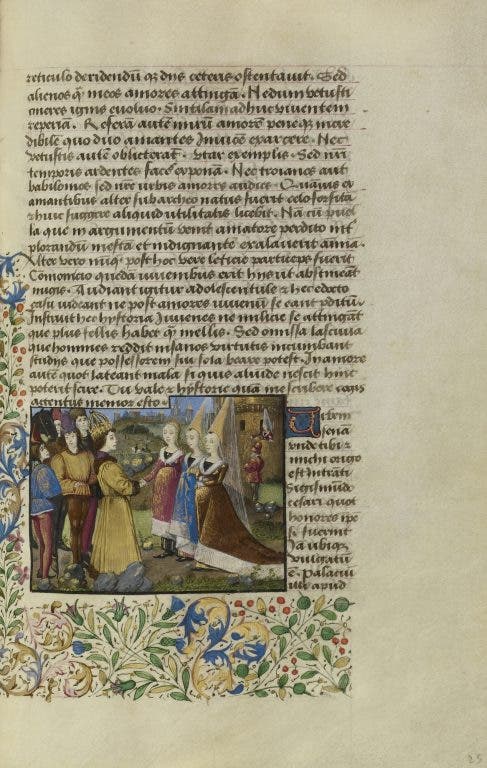 reticulo deridendū qz dns ceteris ostentauit . Sed
alienos qz meos amores attingā . Ne dum vetusti
cineres ignis euoluo . Sintilam ad huc viuentem
reperiā . Referā autē mirū amorē pene qz incre
dibile quo duo amantes Inuicē exarcere . Nec
vetustis autē oblicterat . vtar exemplis . Sed nri
temporis ardentes faces exponā . Nec troianos aut
babilonios sed nre urbis amores audies . Quāuis ex
amantibus alter sub archeo natus fuerit celo forsitā
& huic suggere aliquid utilitatis licebit . Nā cū puel
la que in argumentū venit amatore perdito int
plorandū mestā et indignante exalauerit animā .
Alter vero nūqz post hoc vere leticie particeps fuerit
Comonicio quedā iuuenibus erit hiis ut abstineant
nugis . Audiant igitur adolescentule & hec edocto
casu videant ne post amores iuuenū se eant pditū
Instruit hec hystoria Iuuenes ne milicie se attingāt
que plus fellis habet qz mellis . Sed omissa lasciuia
que homines reddit insanos virtutis incumbant
studiis que possessorem sui sola beare potest . In amore
autē quot lateant mala si quis aliude nescit hinc
poterit scire . Tu vale & hystorie quā me scribere cogis
attentus memor esto
Vrbem
sena
vnde tibi &
michi origo
est Intrāti
Sigismūdo
cesari quot
honores ipe
si fuerint
Ia ubiqz
vulgatū
ē . Palaciū
ille apud
25